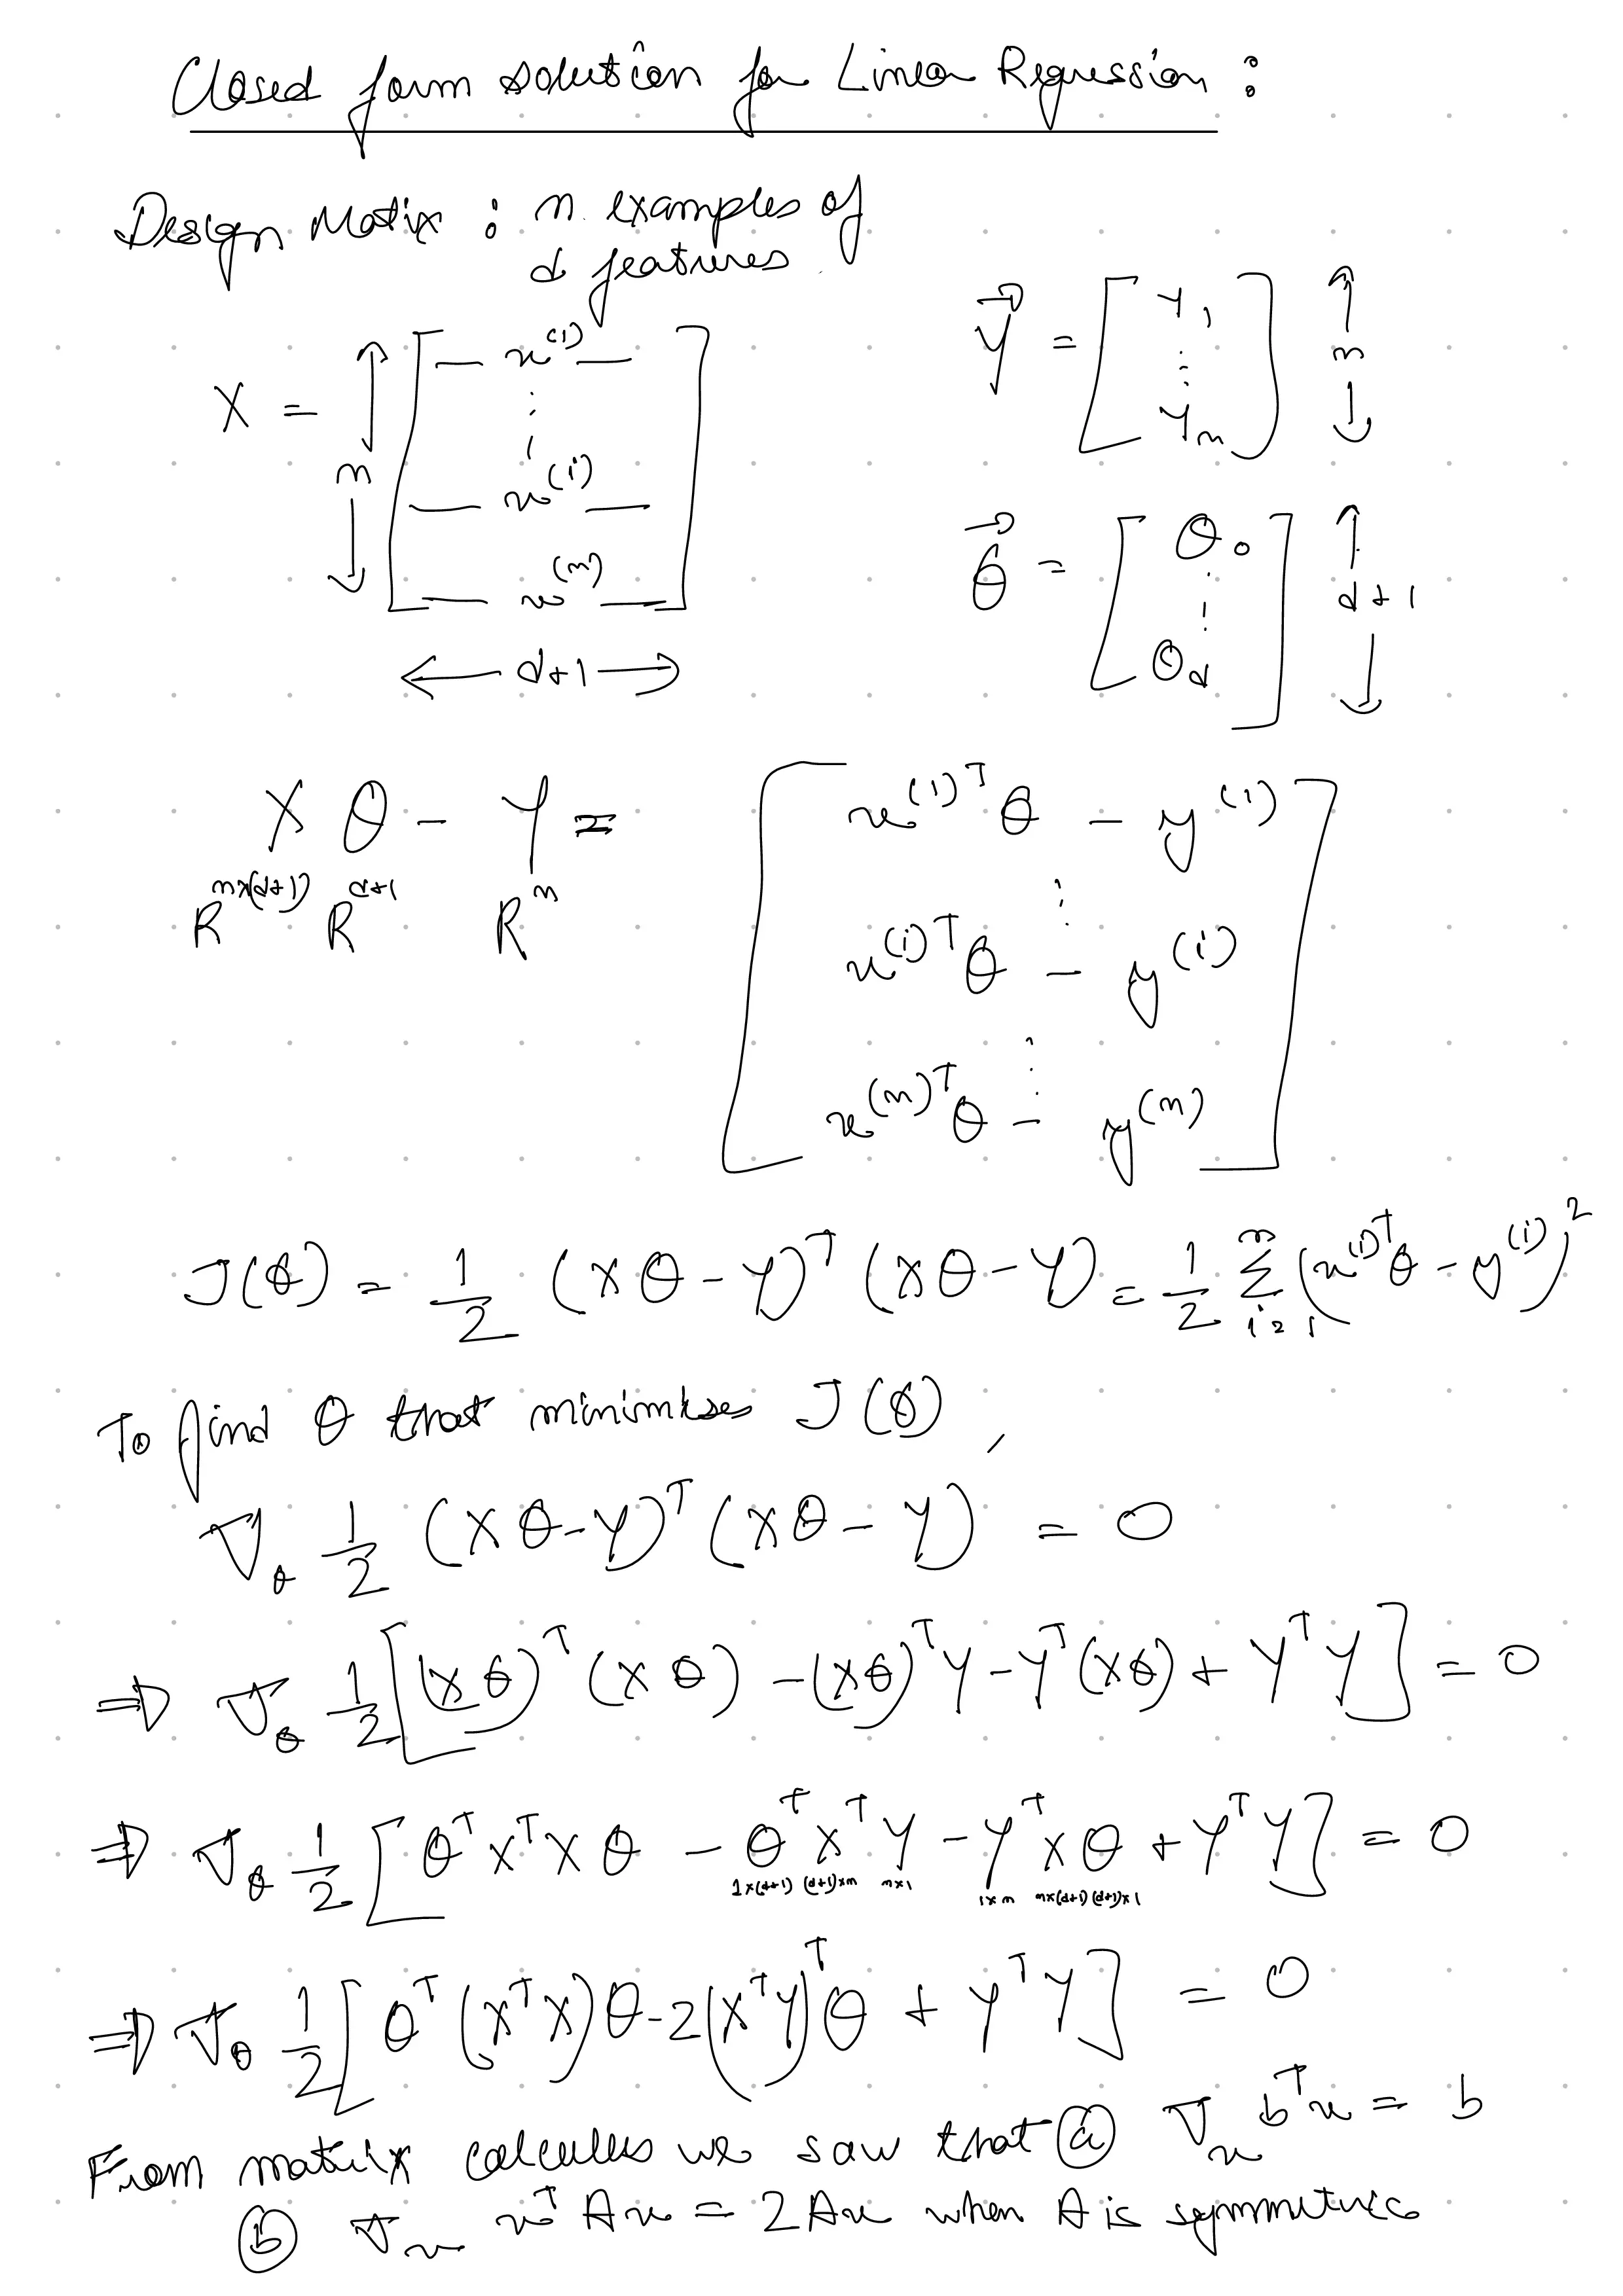 Closed form solution for Linear Regression :
Design Matix : n examples of
d features
X = n [ — x^(1) — ⋮ — x^(i) — — x^(n) — ]
← d+1 →
Y⃗ = [ Y₁ ⋮ Yₙ ] ↑ n ↓
θ⃗ = [ θ₀ ⋮ θ_d ] ↑ d+1 ↓
X θ - Y =
R^n×(d+1) R^d+1 R^n
x^(1)^T θ - y^(1)
⋮
x^(i)^T θ - y^(i)
⋮
x^(n)^T θ - y^(n)
J(θ) = 1/2 (Xθ-Y)^T (Xθ-Y) = 1/2 Σ_{i=1}^n (x^(i)^T θ - y^(i))^2
To find θ that minimises J(θ),
∇_θ 1/2 (Xθ-Y)^T (Xθ-Y) = 0
⇒ ∇_θ 1/2 [(Xθ)^T (Xθ) - (Xθ)^T Y - Y^T (Xθ) + Y^T Y] = 0
⇒ ∇_θ 1/2 [θ^T X^T X θ - θ^T X^T Y - Y^T X θ + Y^T Y] = 0
1×(d+1) (d+1)×n n×1 1×n n×(d+1) (d+1)×1
⇒ ∇_θ 1/2 [θ^T (X^T X) θ - 2(X^T Y)^T θ + Y^T Y] = 0
From matrix calculus we saw that ⓐ ∇_x b^T x = b
ⓑ ∇_x x^T A x = 2Ax when A is symmetric